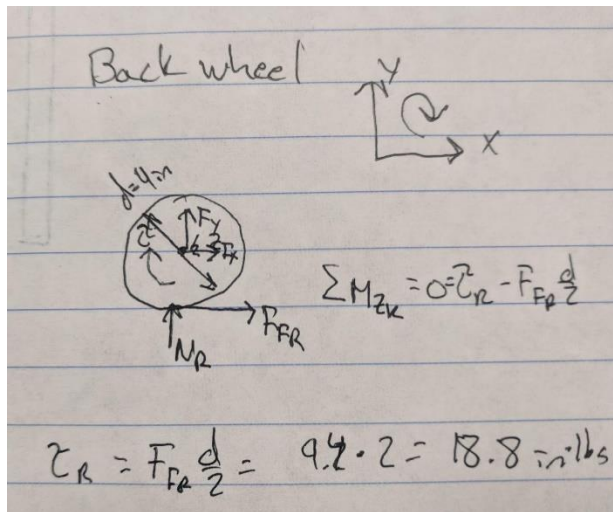 Back wheel
Y
X
d=4in
τ Fy Fx
ΣM_{Z_R} = 0 = τ_R - F_{FR} d/2
F_{FR}
N_R
τ_R = F_{FR} d/2 = 9.4 · 2 = 18.8 in·lbs